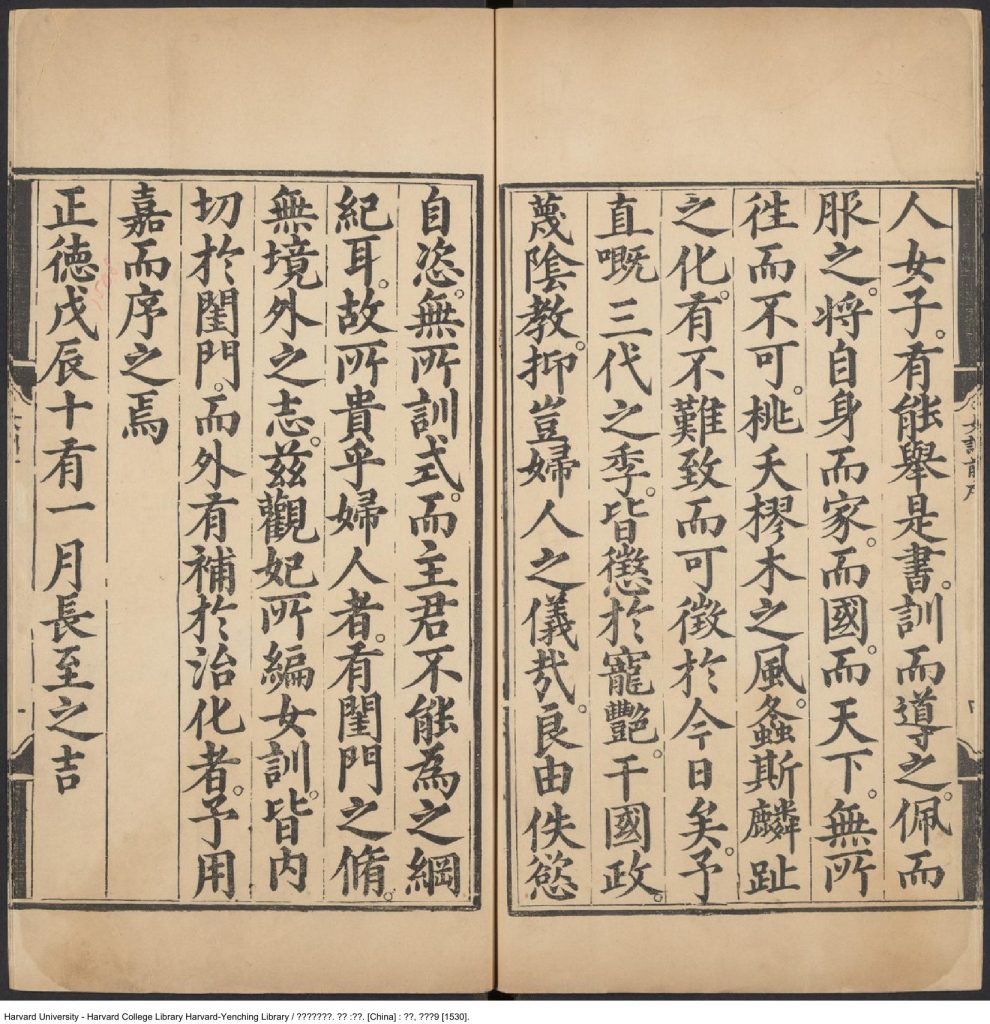 人女子。有能舉是書。訓而導之。佩而
服之。將自身而家。而國。而天下。無所
徃而不可。桃夭樛木之風。螽斯麟趾
之化。有不難致而可徵於今日矣。予
直嘅三代之季。皆懲於寵艷。干國政。
蔑陰教。抑豈婦人之儀哉。良由佚慾
自恣。無所訓式。而主君不能為之綱
紀耳。故所貴乎婦人者。有閨門之脩。
無境外之志。兹觀妃所編女訓。皆内
切於閨門。而外有補於治化者。予用
嘉而序之焉
正徳戊辰十有一月長至之吉
Harvard University - Harvard College Library Harvard-Yenching Library / ???????. ?? :??. [China] : ??, ???9 [1530].